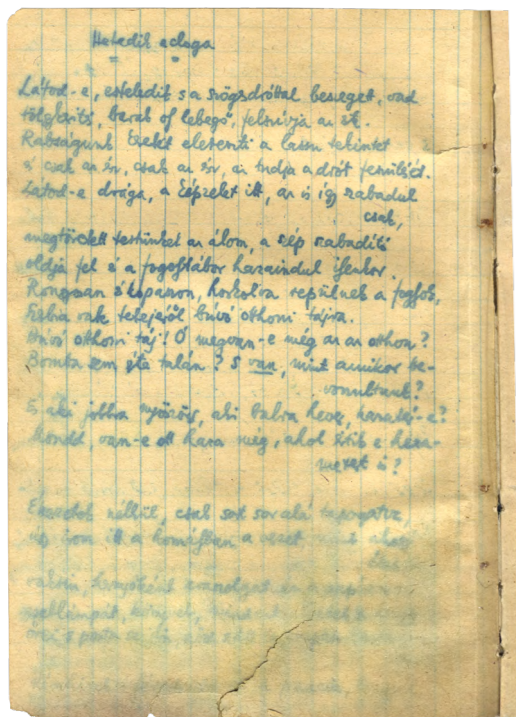 Hetedik ecloga
Látod-e, esteledik s a szögesdróttal beszegett, vad
tölgykerítés, barak oly lebegő, felszívja az est.
Rabságunk keretét elereszti a lassu tekintet
és csak az ész, csak az ész, az tudja a drót feszülését.
Látod-e drága, a képzelet itt, az is így szabadul
csak,
megtöretett testünket az álom, a szép szabadító
oldja fel és a fogolytábor hazaindul ilyenkor.
Rongyosan és kopaszon, horkolva repülnek a foglyok,
Szerbia vak tetejéről búvó otthoni tájra.
Búvó otthoni táj! Ó megvan-e még az az otthon?
Bomba sem érte talán? s van, mint amikor be-
vonultunk?
És aki jobbra nyöszörg, aki balra hever, hazatér-e?
Mondd, van-e ott haza még, ahol értik e hexa-
metert is?
Ékezetek nélkül, csak sort sor alá tapogatva,
úgy irom itt a homályban a verset mint ahogy
élek
vaksin, hernyóként araszolgatván a papíron
zseblámpát, könyvet, mindent elvettek a Lager
őrei s posta se jön, köd száll